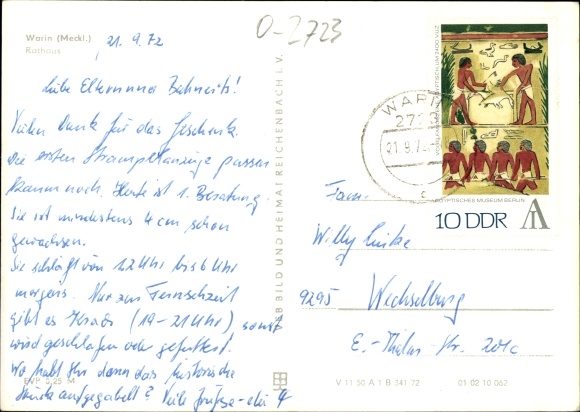 Warin (Meckl.)
Rathaus
21.9.72
O-2723
Liebe Eltern und Bahneits!
Vielen Dank für das Geschenk.
Die ersten Strampelanzüge passen
kaum noch. Heute ist 1. Beratung
Sie ist mindestens 4 cm schon
gewachsen.
Sie schläft von 22 Uhr bis 6 Uhr
morgens. Nur zur Fernsehzeit
gibt es Terror (19-21 Uhr), sonst
wird geschlafen oder gefüttert.
Wo habt Ihr denn das historische
Stück aufgegabelt? Viele Grüße
EVP 0,25 M
VEB BILD UND HEIMAT REICHENBACH I. V.
WARIN
2723
21.9.72
ÄGYPTISCHES MUSEUM BERLIN
10 DDR
Fam.
Willy Linke
9295 Wechselburg
E.-Thälm.-Str. 201c
V 11 50 A 1 B 341 72
01 02 10 062